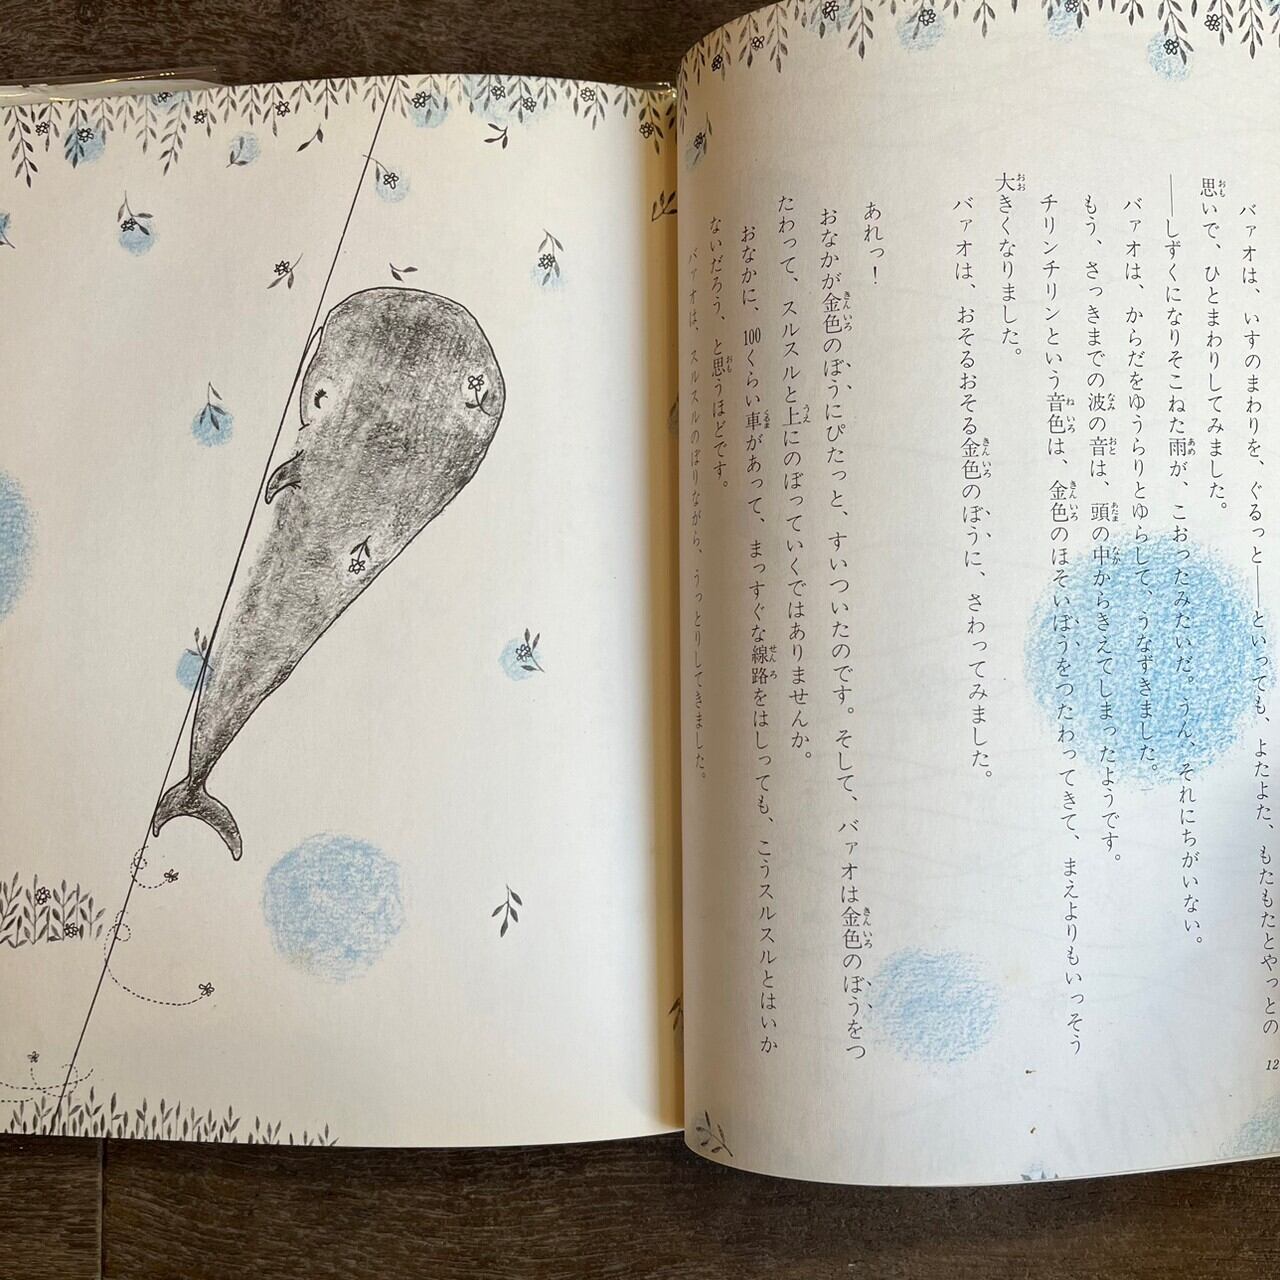 バァオは、いすのまわりを、ぐるっと――といっても、よたよた、もたもたとやっとの
思いで、ひとまわりしてみました。
――しずくになりそこねた雨が、こおったみたいだ。うん、それにちがいない。
バァオは、からだをゆうらりとゆらして、うなずきました。
もう、さっきまでの波の音は、頭の中からきえてしまったようです。
チリンチリンという音色は、金色のほそいぼうをつたわってきて、まえよりもいっそう
大きくなりました。
バァオは、おそるおそる金色のぼうに、さわってみました。
あれっ！
おなかが金色のぼうにぴたっと、すいついたのです。そして、バァオは金色のぼうをつ
たわって、スルスルと上にのぼっていくではありませんか。
おなかに、100くらい車があって、まっすぐな線路をはしっても、こうスルスルとはいか
ないだろう、と思うほどです。
バァオは、スルスルのぼりながら、うっとりしてきました。
12